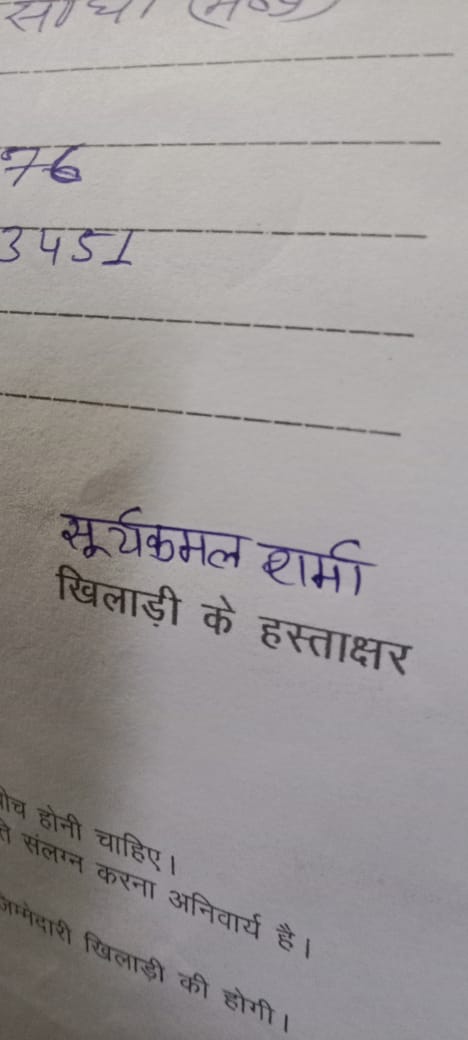 76
3451
सूर्यकमल शर्मा
खिलाड़ी के हस्ताक्षर
होनी चाहिए।
संलग्न करना अनिवार्य है।
खिलाड़ी की होगी।